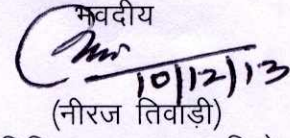 भवदीय
10/12/13
(नीरज तिवाड़ी)